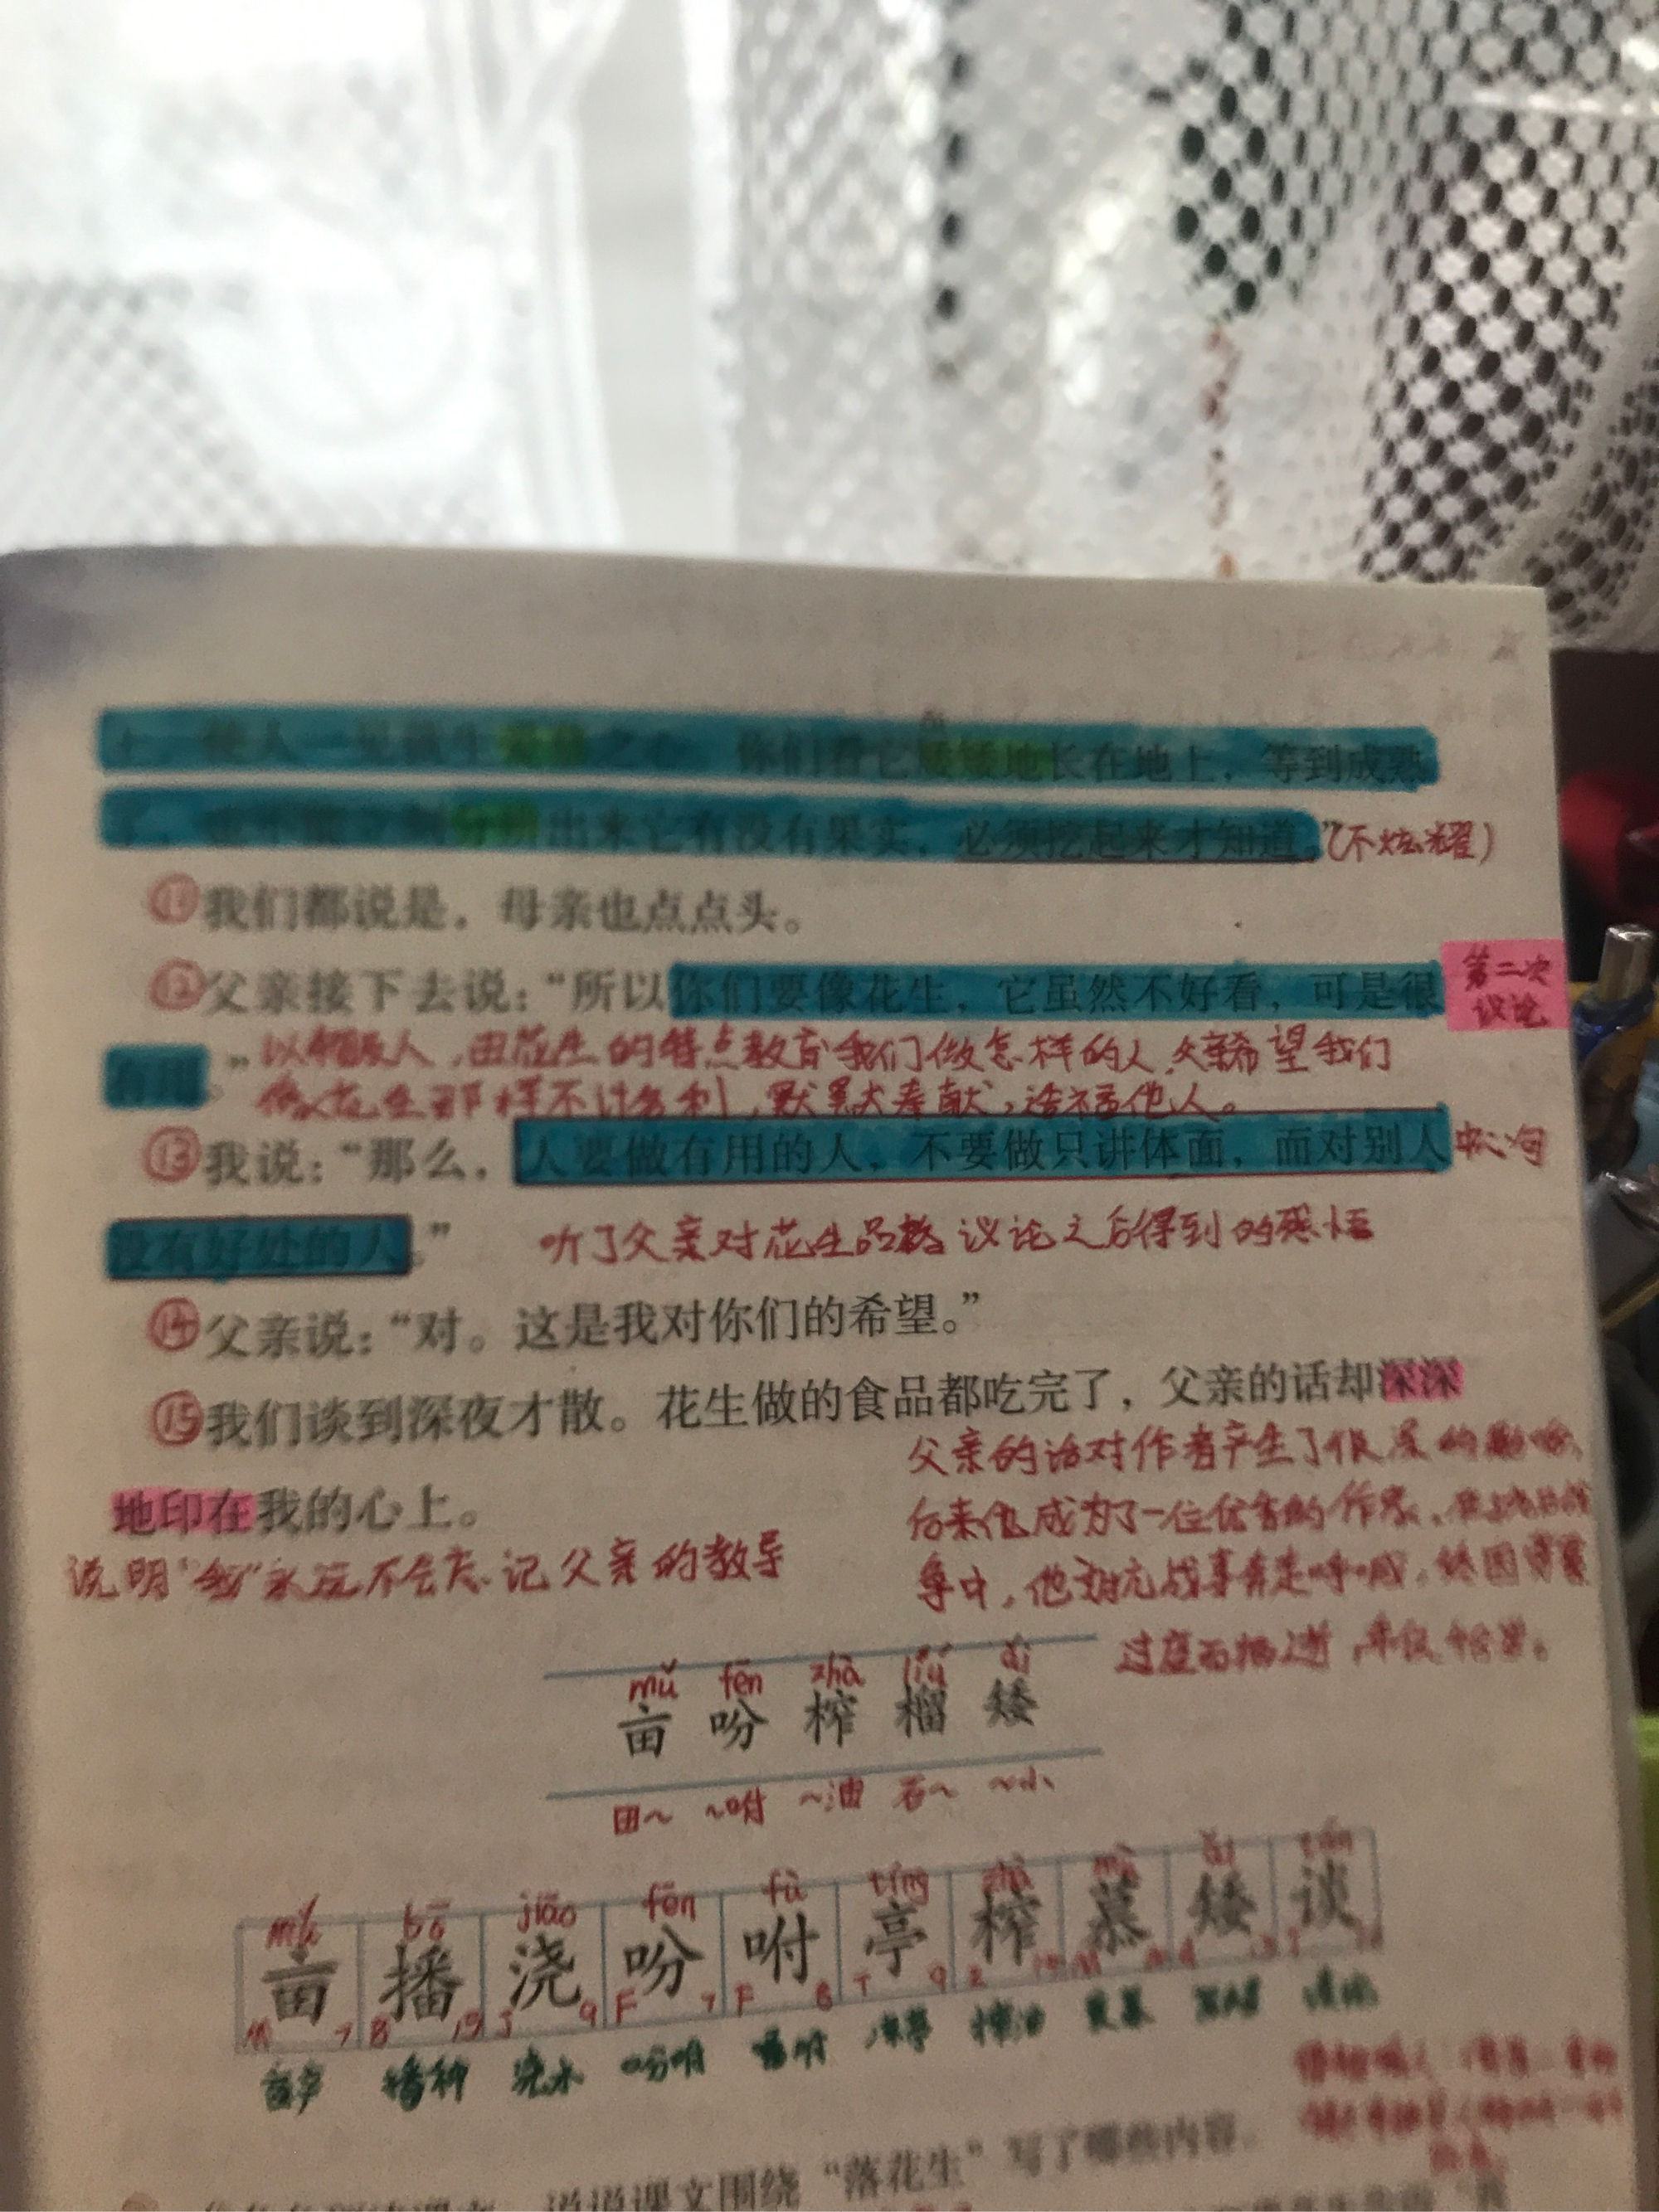 上，使人一见就生爱慕之心。你们看它矮矮地长在地上，等到成熟
了，也不能立刻分辨出来它有没有果实，必须挖起来才知道。”(不炫耀)
⑪我们都说是，母亲也点点头。
⑫父亲接下去说：“所以你们要像花生，它虽然不好看，可是很
第二次
议论
有用。”
以物喻人，由花生的特点教育我们做怎样的人，父亲希望我们
像花生那样不计名利，默默奉献，造福他人。
⑬我说：“那么，人要做有用的人，不要做只讲体面，而对别人
中心句
没有好处的人。”
听了父亲对花生品格议论之后得到的感悟
⑭父亲说：“对。这是我对你们的希望。”
⑮我们谈到深夜才散。花生做的食品都吃完了，父亲的话却深深
地印在我的心上。
说明“我”永远不会忘记父亲的教导
父亲的话对作者产生了很深的影响，
后来他成为了一位优秀的作家，在抗日战
争中，他为抗战事奔走呼喊，终因劳累
过度而病逝，年仅
mǔ fēn zhà liú ǎi
亩 吩 榨 榴 矮
田～ ～咐 ～油 石～ ～小
mǔ bō jiāo fēn fù tíng zhà mù ǎi tán
亩 播 浇 吩 咐 亭 榨 慕 矮 谈
M 7 B 15 J 9 F 7 F 8 T 9 Z
播种 浇水 吩咐 嘱咐 凉亭 榨油 羡慕
说说课文围绕“落花生”写了哪些内容。